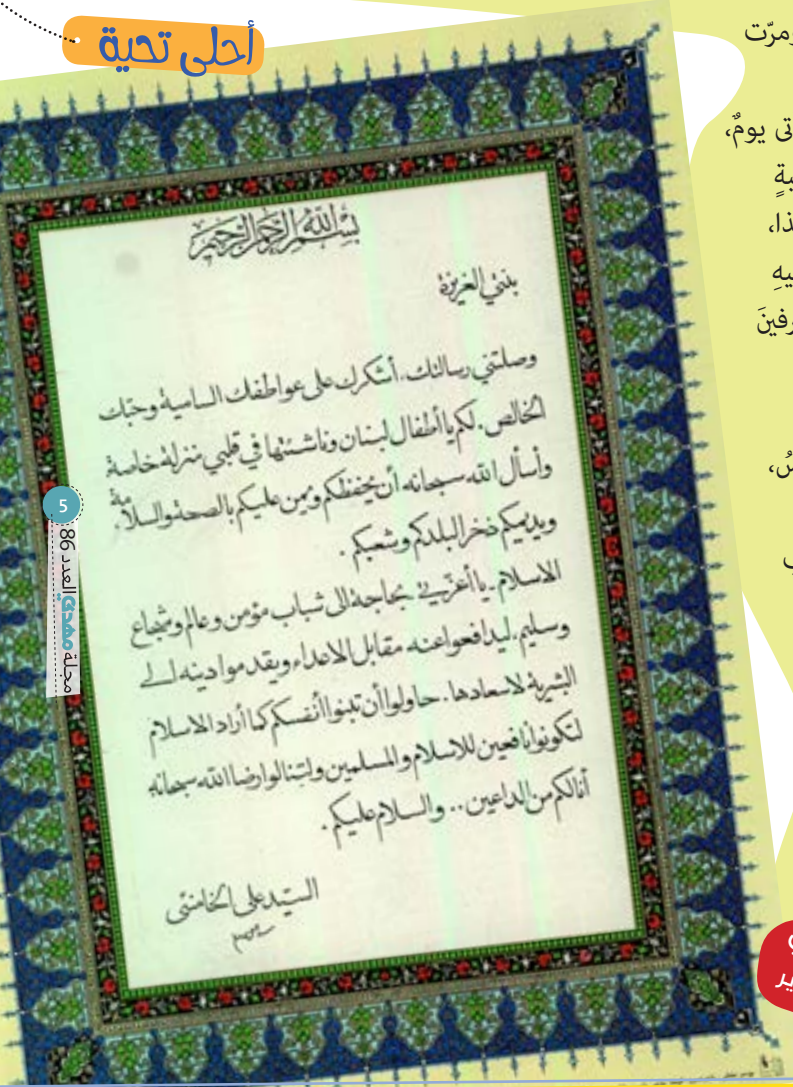 أحلى تحية
ومرّت
يومٌ،
بِسْمِ اللهِ الرَّحْمٰنِ الرَّحِيمِ
بنتي العزيزة
وصلتني رسالتك. أشكرك على عواطفك السامية وحبّك
الخالص. لكم يا أطفال لبنان وناشئتها في قلبي منزلة خاصة
وأسأل الله سبحانه أن يحفظكم ويمن عليكم بالصحة والسلامة.
ويديمكم ذخر البلدكم وشعبكم.
الاسلام. يا أعزّتي بحاجة الى شباب مؤمن وعالم وشجاع
وسليم. ليدافعوا عنه مقابل الاعداء ويقدموا دينه الى
البشرية لاسعادها. حاولوا أن تبنوا أنفسكم كما أراد الاسلام
لتكونوا نافعين للاسلام والمسلمين ولتنالوا رضا الله سبحانه
أنا لكم من الداعين.. والسلام عليكم.
السيّد علي الخامنئي
5
مجلة مهدي العدد 86